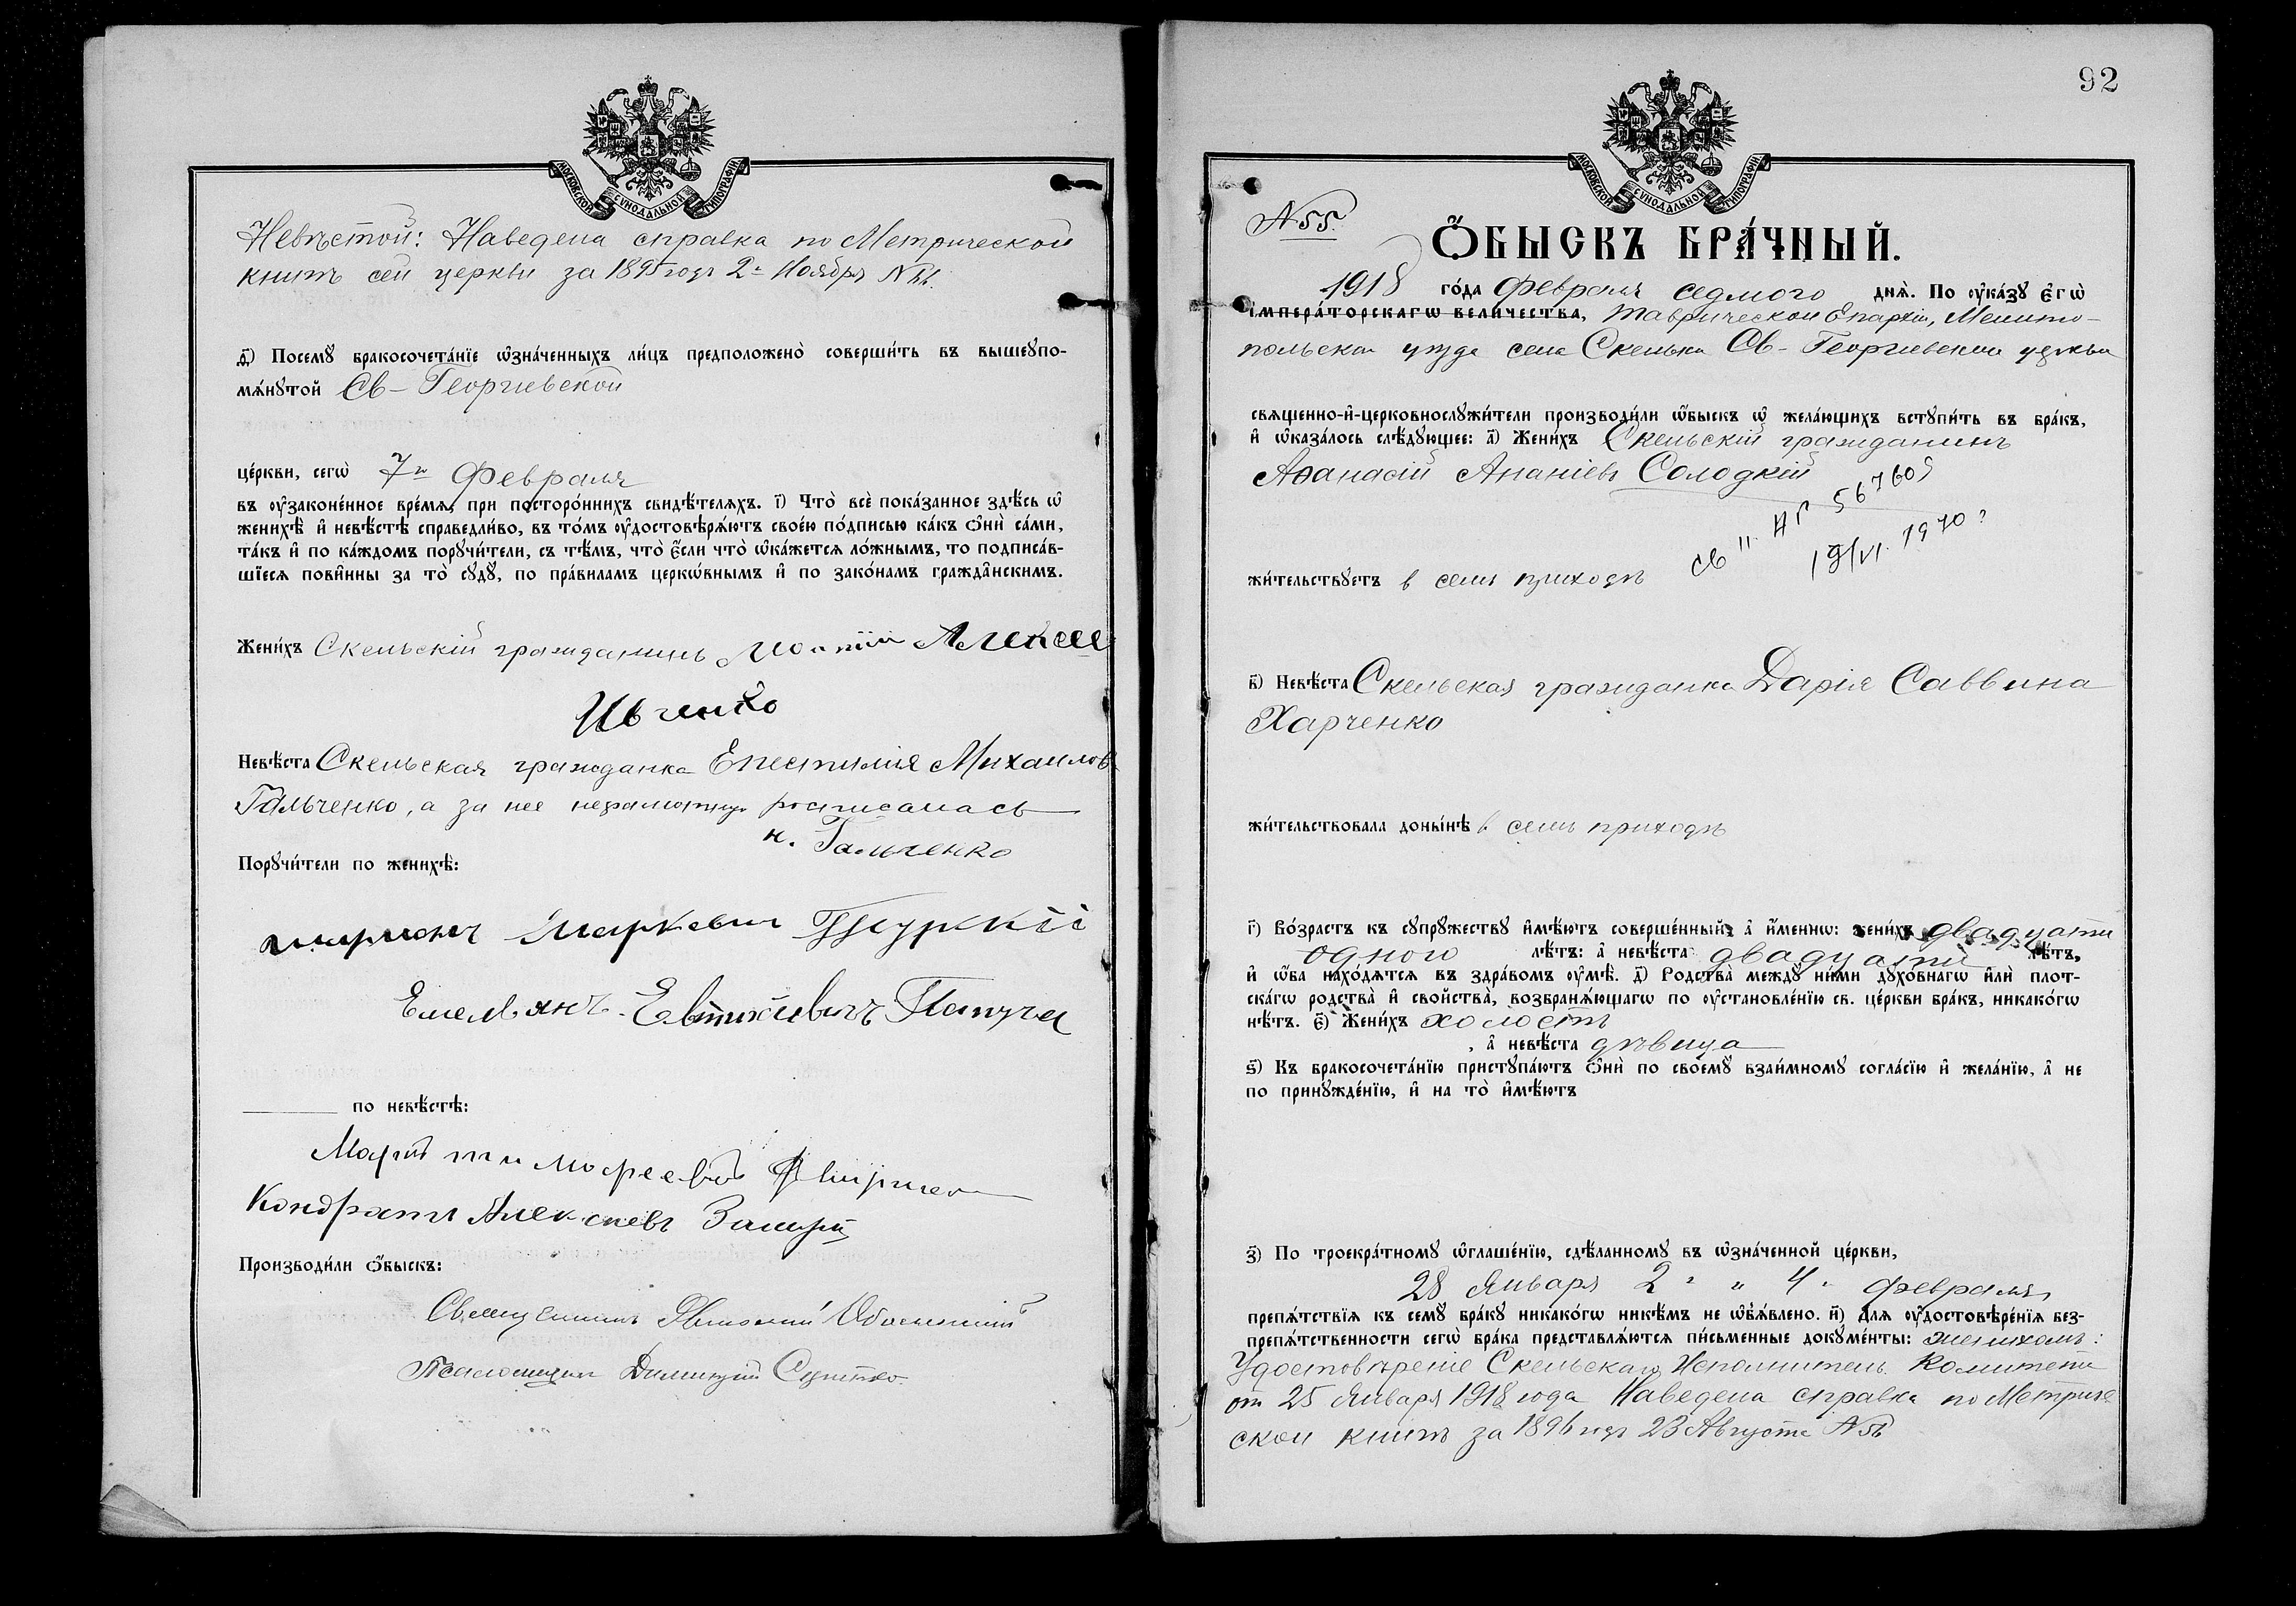 МОСКОВСКОЙ СѴНОДАЛЬНОЙ ТИПОГРАФІИ
Невѣстой: Наведена справка по Метрической
книгѣ сей церкви за 1895 годъ 2го Ноября №
д҃) Посемꙋ̀ бракосочета́нїе ѡ҆зна́ченныхъ ли́цъ предположено̀ соверши́ть въ вышеꙋпо-
мѧ́нꙋтой Св-Георгіевской
це́ркви, сегѡ̀ 7го Февраля
въ ᲂу҆законе́нное вре́мѧ, при посторо́ннихъ свидѣ́телѧхъ. і҃) Что̀ всѐ пока́занное здѣ́сь ѡ҆
женихѣ̀ и҆ невѣ́стѣ справедли́во, въ то́мъ ᲂу҆достовѣрѧ́ютъ свое́ю по́дписью ка́къ ѻ҆нѝ са́ми,
та́къ и҆ по ка́ждомъ порꙋчи́тели, съ тѣ́мъ, что̀ є҆́сли что̀ ѡ҆ка́жетсѧ ло́жнымъ, то подписа́в-
шїесѧ пови́нны за то̀ сꙋдꙋ̀, по пра́виламъ церкѡ́внымъ и҆ по зако́намъ гражда́нскимъ.
Жени́хъ Скельскій гражданинъ Алексее
Ивченко
Невѣ́ста Скельская гражданка Епистимія Михаилов
Гальченко, а за нее неграмотную росписалась
н. Гальченко
Порꙋчи́тели по женихѣ̀:
Маркович
Емельянъ Евтихіевичъ Папуча
по невѣ́стѣ:
Кондратъ Алексеевъ
Производи́ли ѻ҆́быскъ:
Священникъ
Псаломщикъ Димитрій
92
МОСКОВСКОЙ СѴНОДАЛЬНОЙ ТИПОГРАФІИ
№ 55.
Ѻ҆́БЫСКЪ БРА́ЧНЫЙ.
1918 го́да Февраля седмого днѧ̀. По ᲂу҆ка́зꙋ є҆гѡ̀
і҆мпера́торскагѡ вели́чества, Таврической Епархіи, Мелито-
польскаго уѣзда села Скелька Св-Георгіевской церкви
свѧщенно-и҆-церковнослꙋжи́тели производи́ли ѡ҆́быскъ ѡ҆ жела́ющихъ встꙋпи́ть въ бра́къ,
и҆ ѡ҆каза́лось слѣ́дꙋющее: а҃) Жени́хъ Скельскій гражданинъ
Аѳанасій Ананіевъ Солодкій
св II АГ 567605
19/VI. 1970г
жи́тельствꙋетъ въ семъ приходѣ
в҃) Невѣ́ста Скельская гражданка Дарія Саввина
Харченко
жи́тельствовала доны́нѣ въ семъ приходѣ
г҃) Во́зрастъ къ сꙋпрꙋ́жествꙋ и҆мѣ́ютъ соверше́нный, а҆ и҆́меннѡ: жени́хъ двадцати
одного лѣ́тъ: а҆ невѣ́ста двадцати лѣ́тъ,
и҆ ѻ҆́ба нахо́дѧтсѧ въ здра́вомъ ᲂу҆мѣ̀. д҃) Родства̀ междꙋ̀ ни́ми дꙋхо́внагѡ и҆лѝ плот-
ска́гѡ родства̀ и҆ свойства̀, возбранѧ́ющагѡ по ᲂу҆становле́нїю св. це́ркви бра́къ, никако́гѡ
нѣ́тъ. є҃) Жени́хъ холостъ
, а҆ невѣ́ста дѣвица
ѕ҃) Къ бракосочета́нїю пристꙋпа́ютъ ѻ҆нѝ по своемꙋ̀ взаи́мномꙋ согла́сїю и҆ жела́нїю, а҆ не
по принꙋжде́нїю, и҆ на то̀ и҆мѣ́ютъ
з҃) По троекра́тномꙋ ѡ҆глаше́нїю, сдѣ́ланномꙋ въ ѡ҆зна́ченной це́ркви,
28 Января 2 " " 4 " Февраля,
препѧ́тствїѧ къ семꙋ̀ бра́кꙋ никако́гѡ никѣ́мъ не ѡ҆б̾ѧ́влено. и҃) Длѧ ᲂу҆достовѣре́нїѧ без-
препѧ́тственности сегѡ̀ бра́ка представлѧ́ютсѧ пи́сьменные докꙋме́нты: женихомъ:
Удостовѣреніе Скельскаго Исполнитель. Комитета
от 25 Января 1918 года Наведена справка по Метриче
ской книгѣ за 1896 годъ 23 Августа № 56